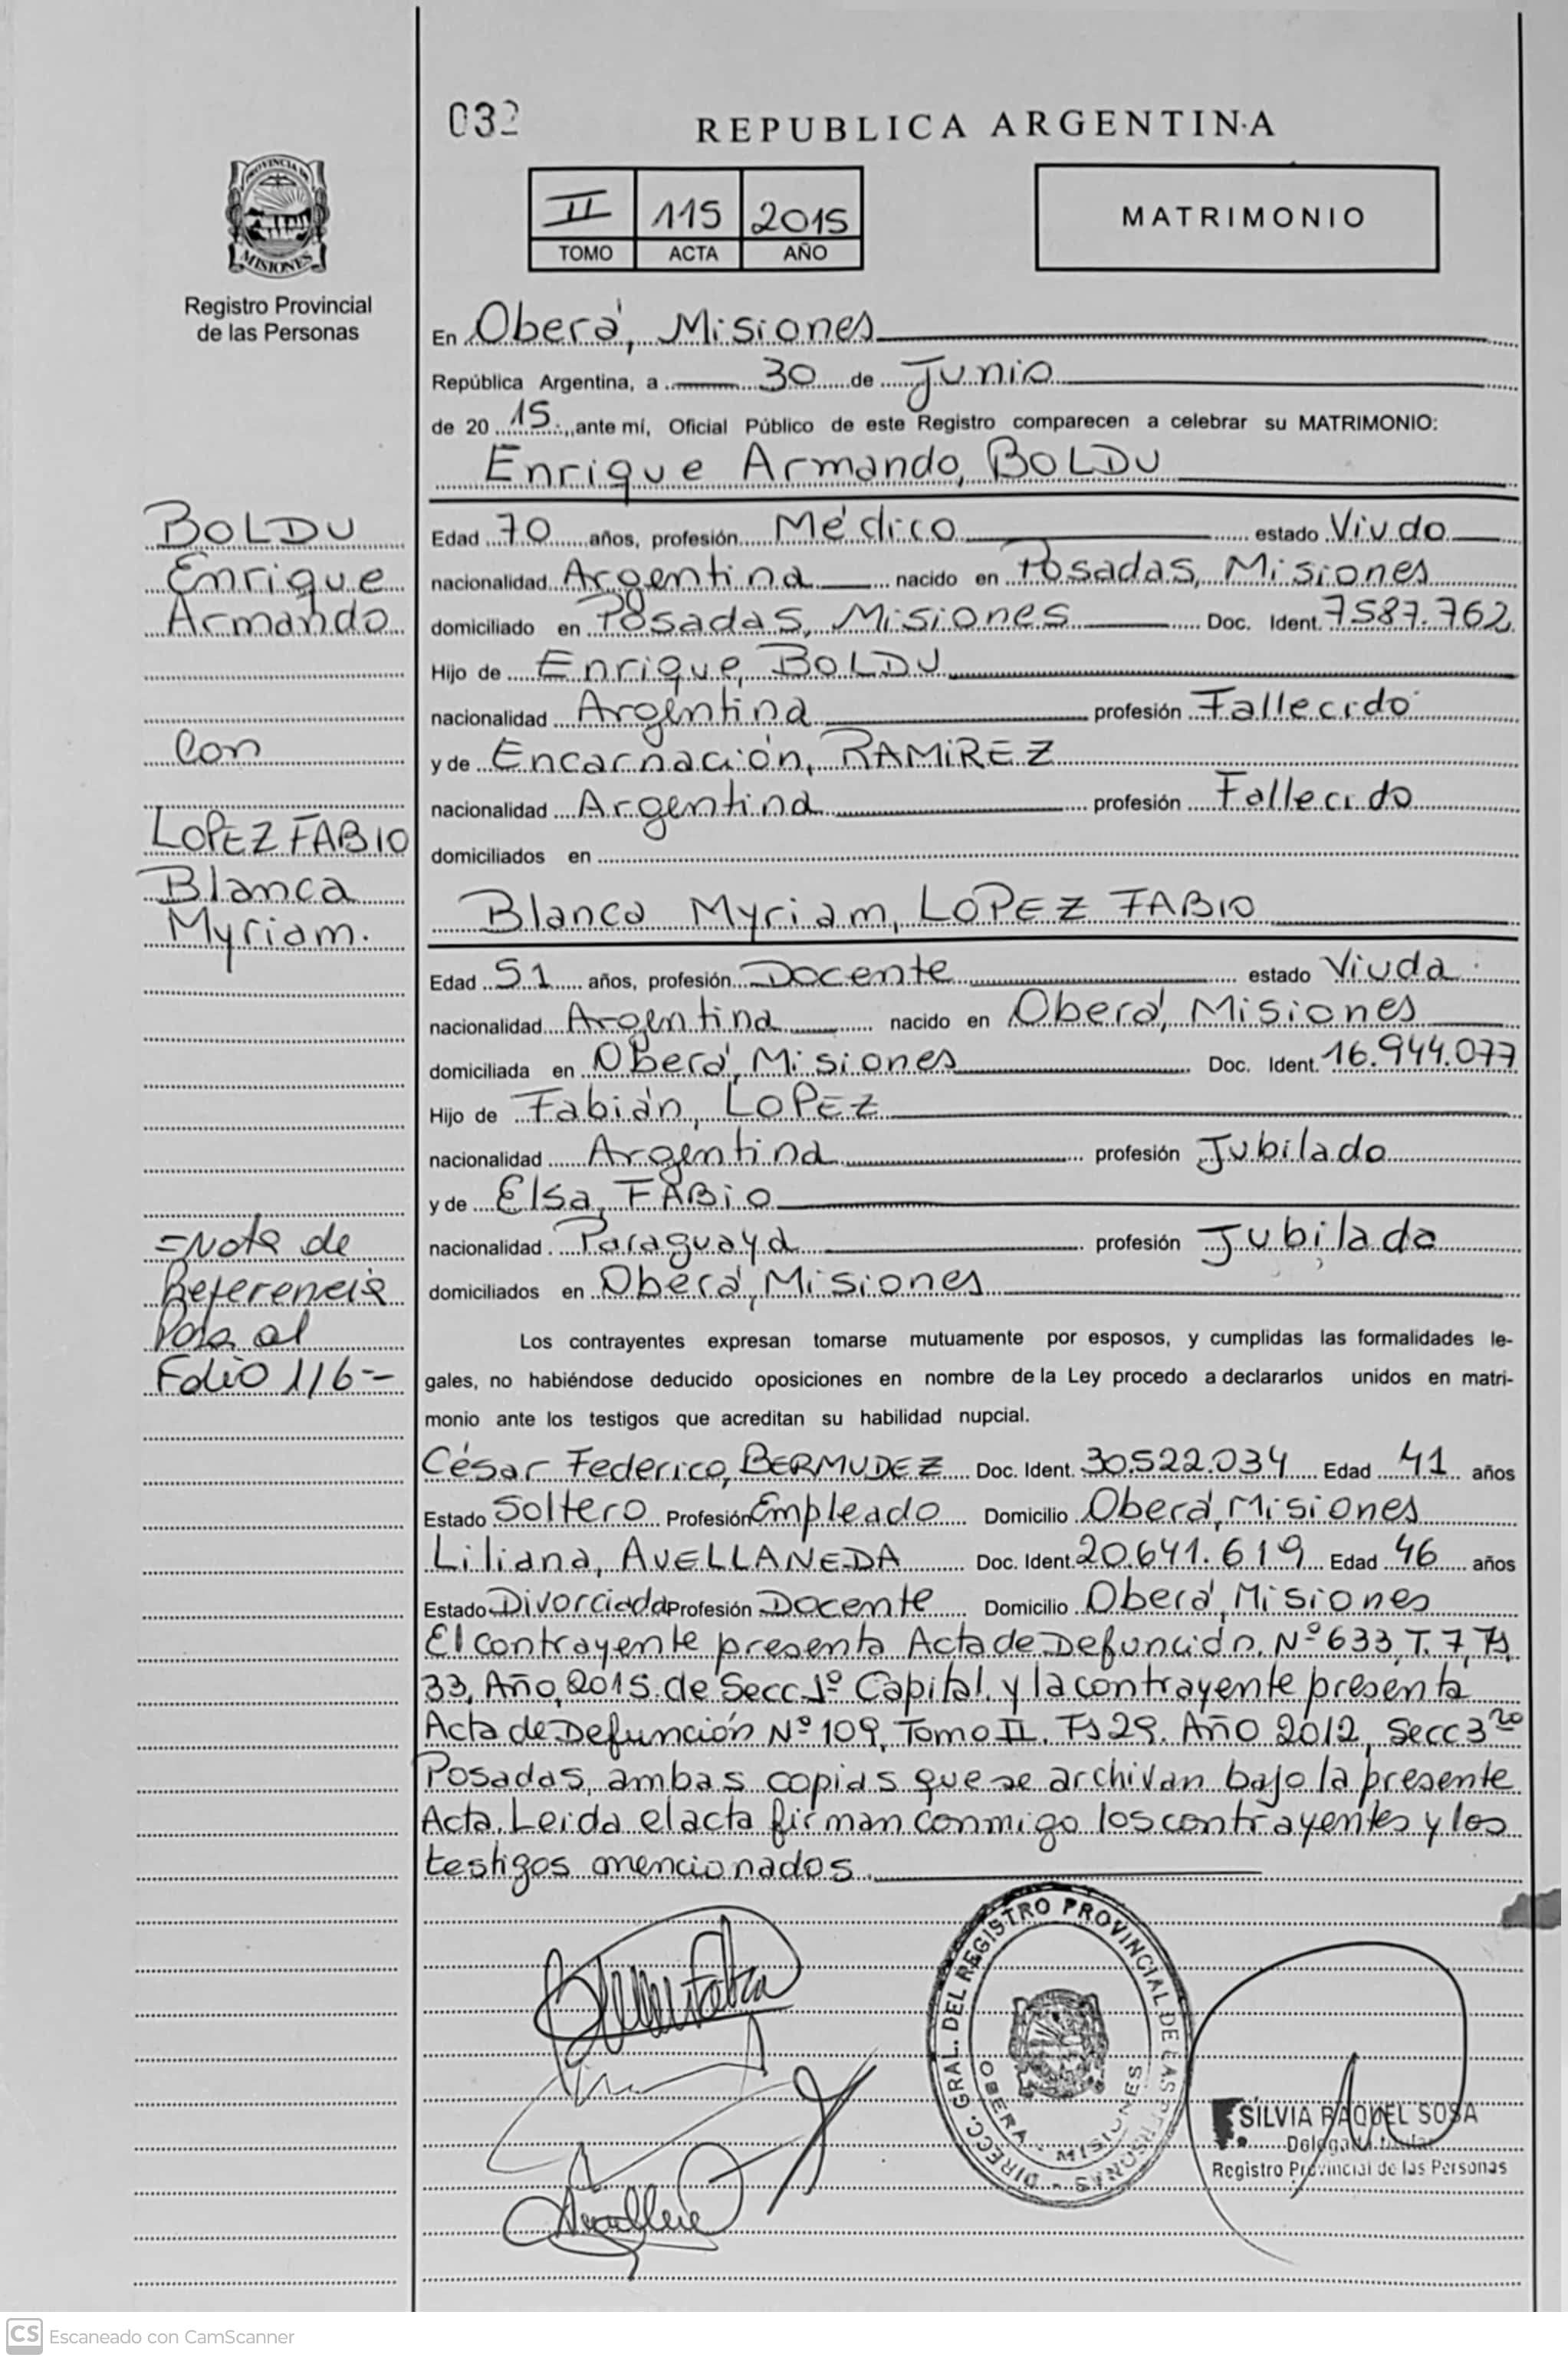 032
REPUBLICA ARGENTINA
II 115 2015
TOMO ACTA AÑO
MATRIMONIO
PROVINCIA DE
MISIONES
Registro Provincial
de las Personas
BOLDU
Enrique
Armando
Con
LOPEZ FABIO
Blanca
Myriam.
=Nota de
Referencia
Pasa al
Folio 116=
En Oberá, Misiones
República Argentina, a 30 de Junio
de 20 15, ante mí, Oficial Público de este Registro comparecen a celebrar su MATRIMONIO:
Enrique Armando, BOLDU
Edad 70 años, profesión Médico estado Viudo
nacionalidad Argentina nacido en Posadas, Misiones
domiciliado en Posadas, Misiones Doc. Ident. 7587.762
Hijo de Enrique, BOLDU
nacionalidad Argentina profesión Fallecido
y de Encarnación, RAMIREZ
nacionalidad Argentina profesión Fallecido
domiciliados en
Blanca Myriam, LOPEZ FABIO
Edad 51 años, profesión Docente estado Viuda
nacionalidad Argentina nacido en Oberá, Misiones
domiciliada en Oberá, Misiones Doc. Ident. 16.944.077
Hijo de Fabián, LOPEZ
nacionalidad Argentina profesión Jubilado
y de Elsa, FABIO
nacionalidad Paraguaya profesión Jubilada
domiciliados en Oberá, Misiones
Los contrayentes expresan tomarse mutuamente por esposos, y cumplidas las formalidades le-
gales, no habiéndose deducido oposiciones en nombre de la Ley procedo a declararlos unidos en matri-
monio ante los testigos que acreditan su habilidad nupcial.
César Federico, BERMUDEZ Doc. Ident. 30.522.034 Edad 41 años
Estado Soltero Profesión Empleado Domicilio Oberá, Misiones
Liliana, AVELLANEDA Doc. Ident. 20.641.619 Edad 46 años
Estado Divorciada Profesión Docente Domicilio Oberá, Misiones
El contrayente presenta Acta de Defunción. Nº 633, T. 7, Fs
33, Año, 2015. de Secc. 1º Capital. y la contrayente presenta
Acta de Defunción Nº 109, Tomo II. Fs 29. Año 2012, Secc 3ra
Posadas, ambas copias que se archivan bajo la presente
Acta. Leida el acta firman conmigo los contrayentes y los
testigos mencionados.
DIRECC. GRAL. DEL REGISTRO PROVINCIAL DE LAS PERSONAS
OBERA - MISIONES
SILVIA RAQUEL SOSA
Delegada Titular
Registro Provincial de las Personas
CS Escaneado con CamScanner